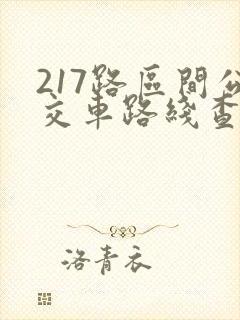 217路區間公
交車路綫查
洛青衣